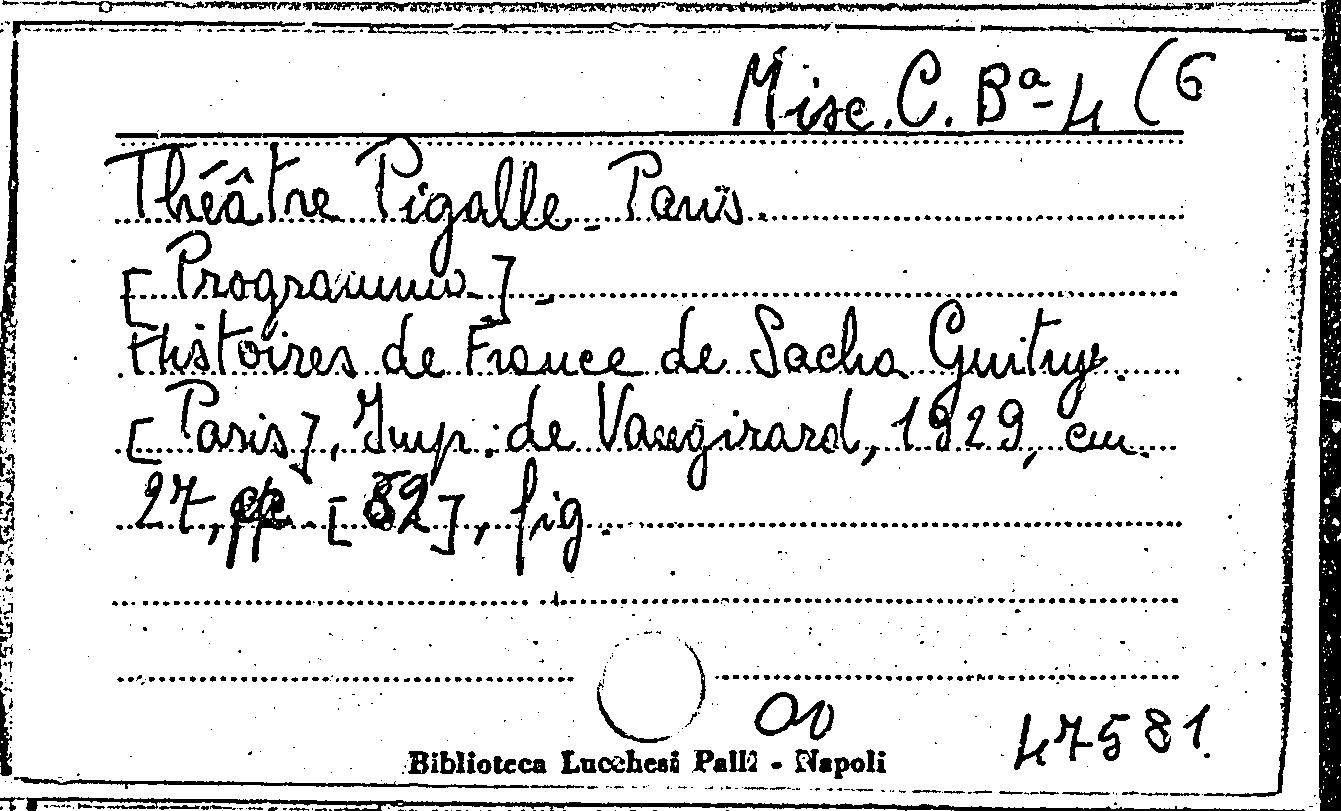 Misc. C. Bª-4 (6
Théâtre Pigalle - Paris.
[Programma] -
Histoires de France de Sacha Guitry.
[Paris], Imp. de Vaugirard, 1929, cm.
27, pp. [52], fig.
47581
Biblioteca Lucchesi Palli - Napoli